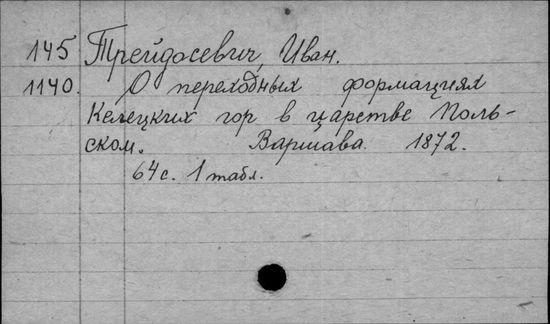 145 Трейдосевич, Иван.
1140. О переходных формациях
Келецких гор в царстве Поль-
ском. Варшава. 1872.
64 с. 1 табл.